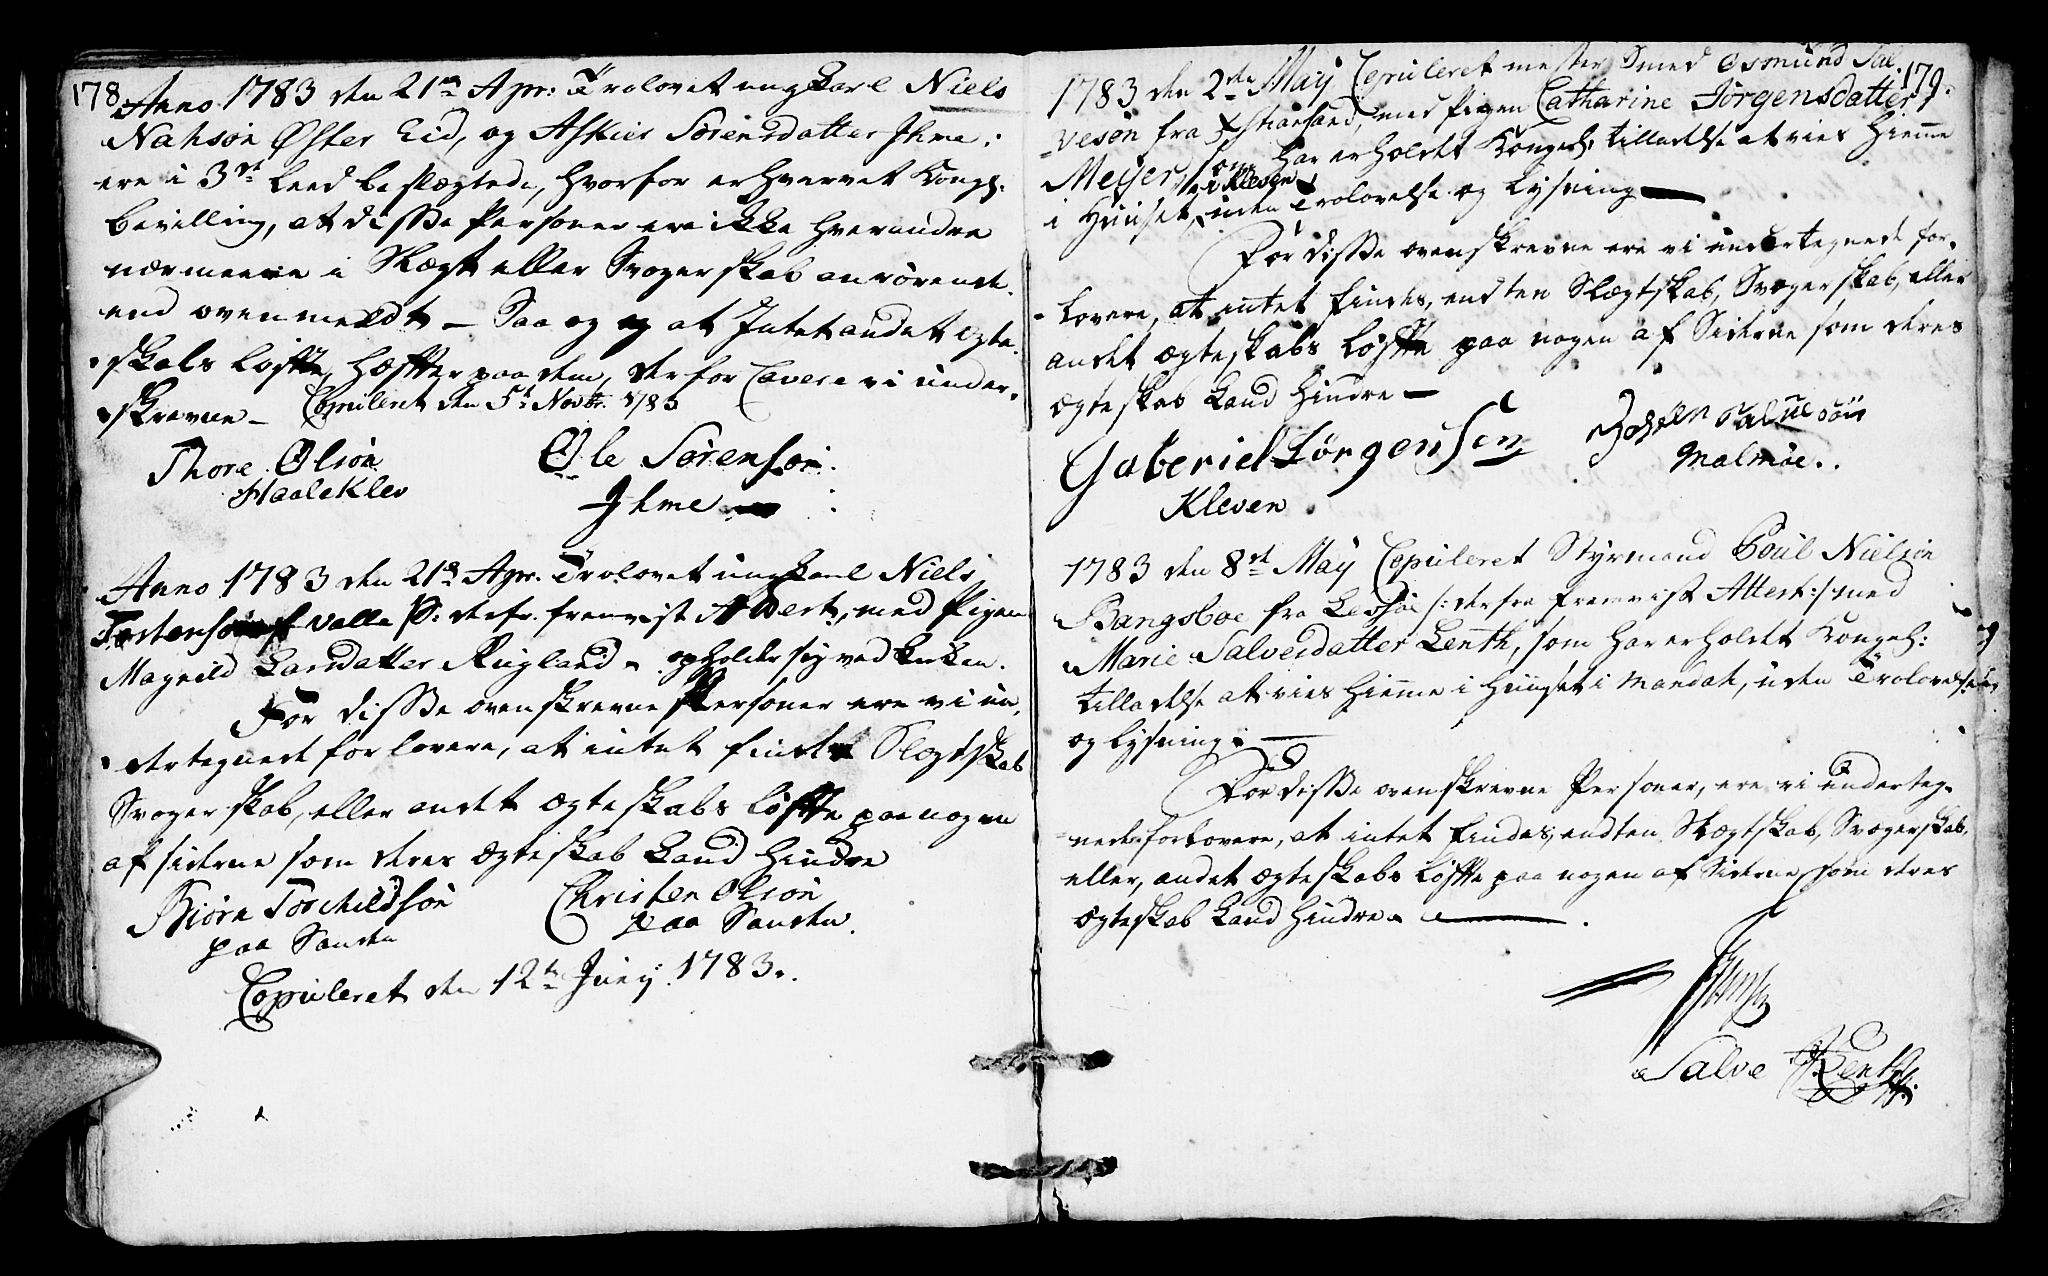 178.
Anno 1783 den 21de Apr: Trolovet ungkarl Niels
Nahsøn Øster Eid, og Assier Sørensdatter Ihme:
ere i 3de Leed beslægtede, hvorfor erhvervet Kongl.
bevilling, at disse Personer ere ikke hverandre
nærmere i Slægt eller Svogerskab anrørende
end ovenmeldt – Saa og at Intet andet ægte-
skabs løffte, hæffter paa dem, derfor Cavere vi under-
skrevne – Copuleret den 5t Novbr. 1783
Thore Olsøn
Haaleklev
Ole Sørensøn
Ihme
Anno 1783 den 21de Apr. Trolovet ungkarl Niels
Tostensøn Valle /S: derfr. fremvist Attest:, med Pigen
Magnild Larsdatter Rugland – opholder sig ved Kirken.
For disse ovenskrevne Personer ere vi un-
dertegnede forlovere, at intet findes Slegtskab
Svogerskab, eller andet ægteskabs løffte paa nogen
af siderne som deres ægteskab kand hindre
Biørn Torchildsøn
paa Sanden
Christen Olsøn
paa Sanden.
Copuleret den 12te Juny 1783.
179.
1783 den 2den May Copuleret mester Smed Osmund Sal-
vesøn fra Xstiansand, med Pigen Catharine Jörgensdatter
Meyer, som har erholdet Kongel: tilladelse at vies hieme
i Huuset, i Kleven, uden Trolovelse og lysning –
For disse ovenskrevne ere vi undertegnede for-
lovere, at intet findes, endten Slægtskab, Svogerskab, eller
andet ægteskabs løffte paa nogen af Siderne som deres
ægteskab kand hindre –
Gaberiel Lörgensen
Kleven
Salvesøn
Malmøe.
1783 den 8de May Copuleret Styrmand Poul Nielsøn
Bangsboe fra Lessøe /: derfra fremvist Attest :/ med
Marie Salvesdatter Lenth, som har erholdet Kongel:
tilladelse at vies hieme i Huuset i Mandal, uden Trolovelse
og lysning. –
For disse ovenskrevne Personer, ere vi underteg-
nede forlovere, at intet findes, endten Slægtskab, Svogerskab,
eller, andet ægteskabs løffte paa nogen af Siderne, som deres
ægteskab kand hindre. –
Salve Lenth